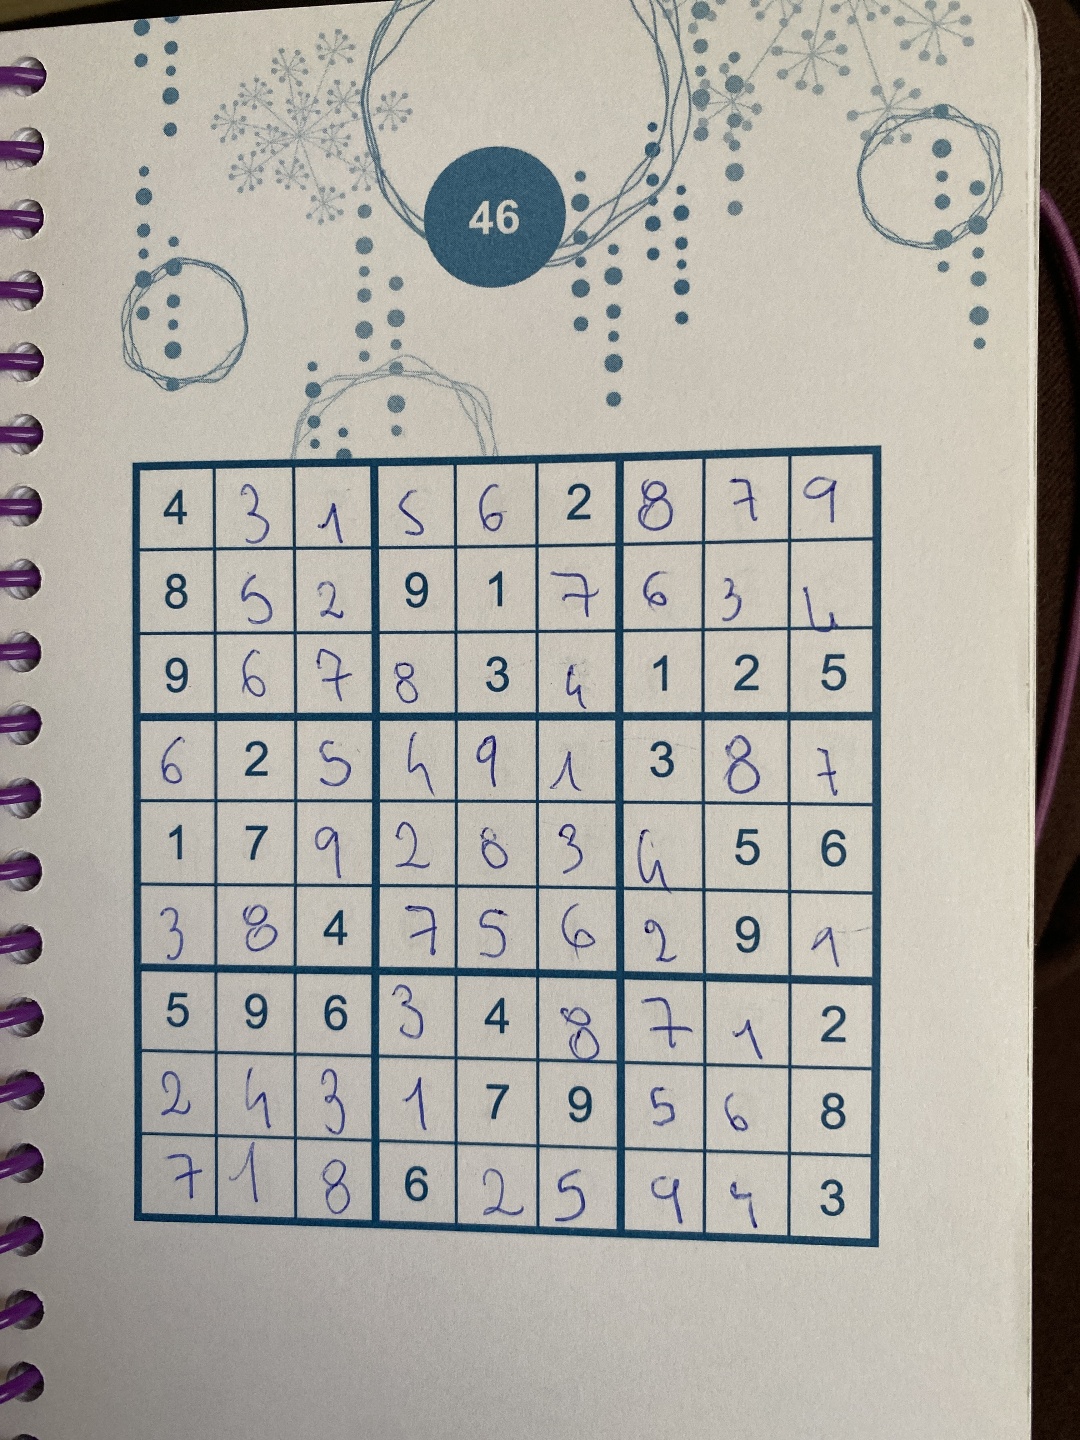 46
4 3 1 5 6 2 8 7 9
8 5 2 9 1 7 6 3 4
9 6 7 8 3 4 1 2 5
6 2 5 4 9 1 3 8 7
1 7 9 2 8 3 4 5 6
3 8 4 7 5 6 2 9 1
5 9 6 3 4 8 7 1 2
2 4 3 1 7 9 5 6 8
7 1 8 6 2 5 9 4 3